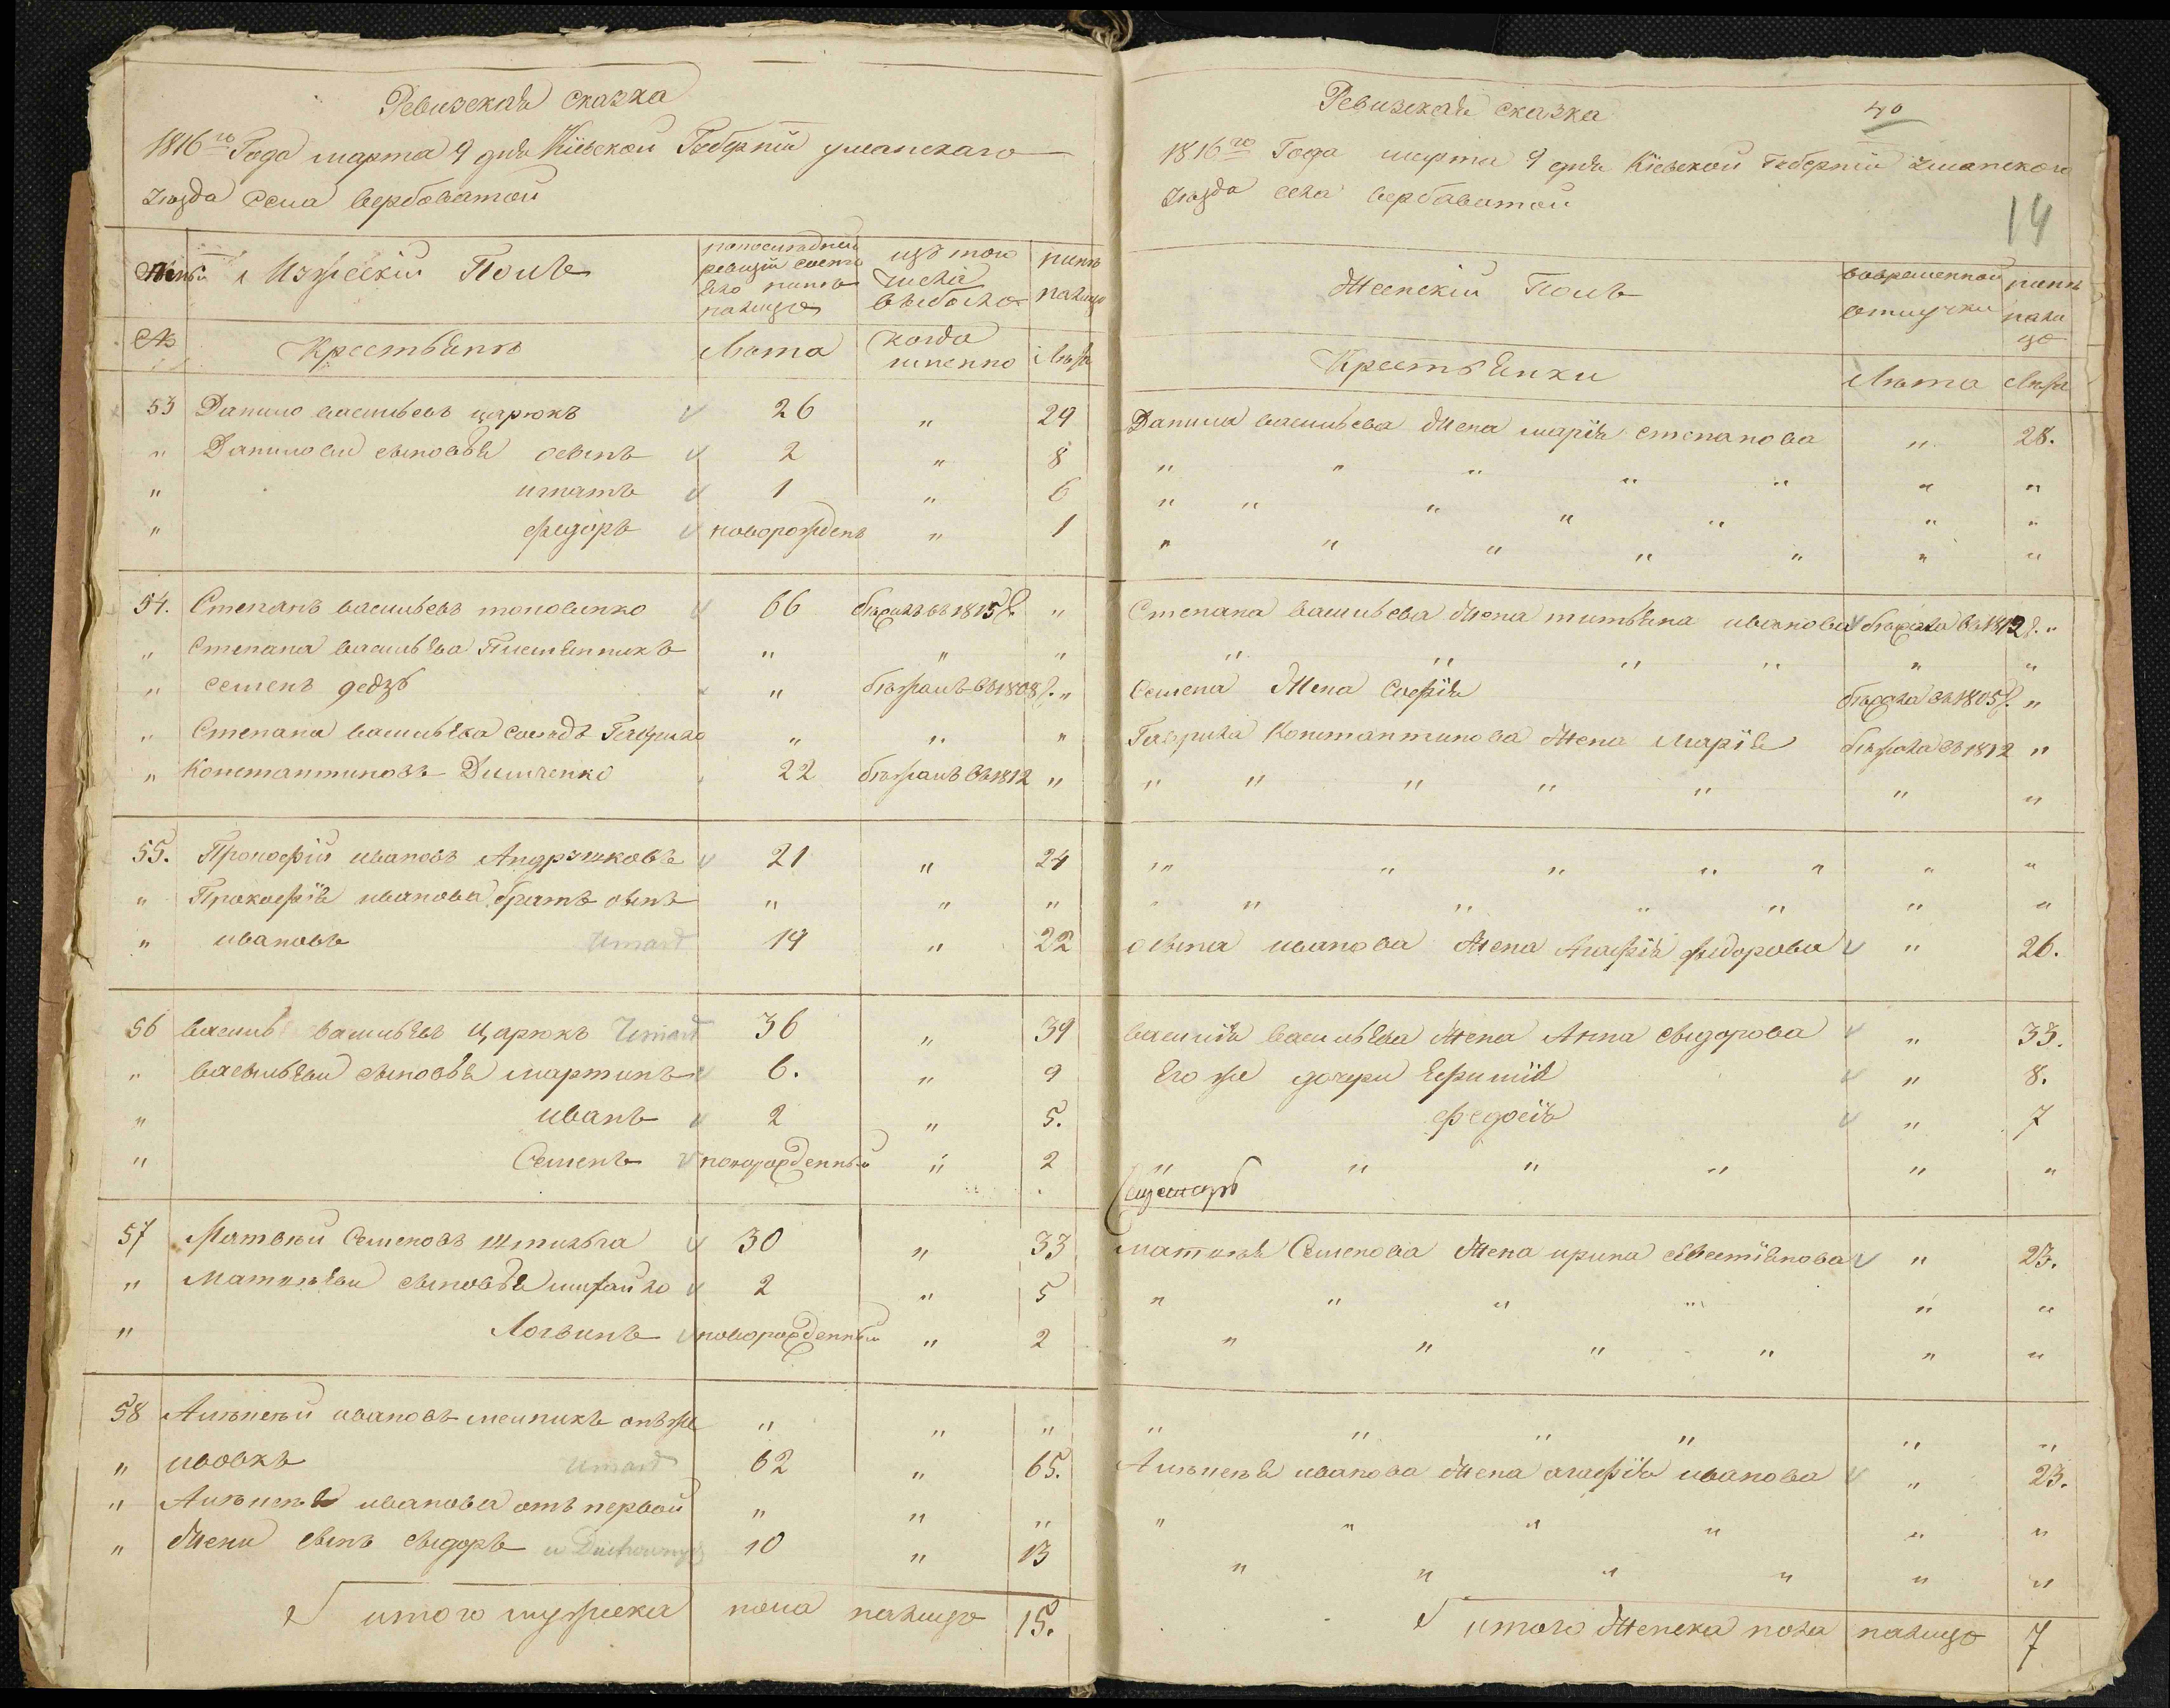 Ревизская сказка
1816го Года марта 9 дня Кіевской Губерніи уманскаго
уезда села вербоватой
Мужескій Полъ
по последней ревизіи состояло ныне налицо
изъ того числа выбыло
ныне налицо
№ Крестьянъ Лета когда именно Лета
53 Данило васильевъ царюкъ 26 " 29
" Даниловы сыновья осыпъ 2 " 8
" игнатъ 1 " 6
" федоръ новорожденъ " 1
54. Степанъ васильевъ 66 въ 1815 г. "
" Степана васильева Племянникъ " " "
" семенъ " бежалъ въ 1808 г. "
" Степана васильева Гаврило " " "
" Константиновъ Димченко 22 бежалъ въ 1812 "
55. Прокофій ивановъ Андрушковъ 21 " 24
" Прокофія иванова братъ осыпъ " " "
" ивановъ umarł 19 " 22
56 василь васильевъ Царюкъ Umarł 36 " 39
" васильевы сыновья мартинъ 6. " 9
" иванъ 2 " 5.
" Семенъ новорожденный " 2
57 Матвей Семеновъ 30 " 33
" Матвеевы сыновья михайло 2 " 5
" Логвинъ новорожденный " 2
58 Алексей ивановъ мельникъ онъ же " " "
" вовкъ umarł 62 " 65.
" Алексея иванова отъ первой " " "
" жены сынъ сыдоръ 10 " 13
итого мужеска пола налицо 15.
Ревизская сказка 40
1816го Года марта 9 дня Кіевской Губерніи уманского
уезда села вербоватой
14
Женскій Полъ
во временной отлучке
ныне налицо
Крестьянки Лета Лета
Данила васильева жена марія степанова " 28.
" " " " " " "
" " " " " " "
" " " " " " "
Степана васильева жена татьяна иванова въ 1812 г. "
" " " " " "
Семена жена Софія въ 1805 г. "
Гаврила Константинова жена Марія бежала въ 1812 "
" " " " " " "
" " " " " " "
" " " " " " "
осыпа иванова жена Агафія федорова " 26.
василія васильева жена Анна сыдорова " 33.
Его же дочери Ефимія " 8.
федосія " 7
" " " " " "
Матвея Семенова жена ирина " 23.
" " " " " "
" " " " " "
" " " " " "
Алексея иванова жена агафія иванова " 23.
" " " " " "
" " " " " "
итого Женска пола налицо 7